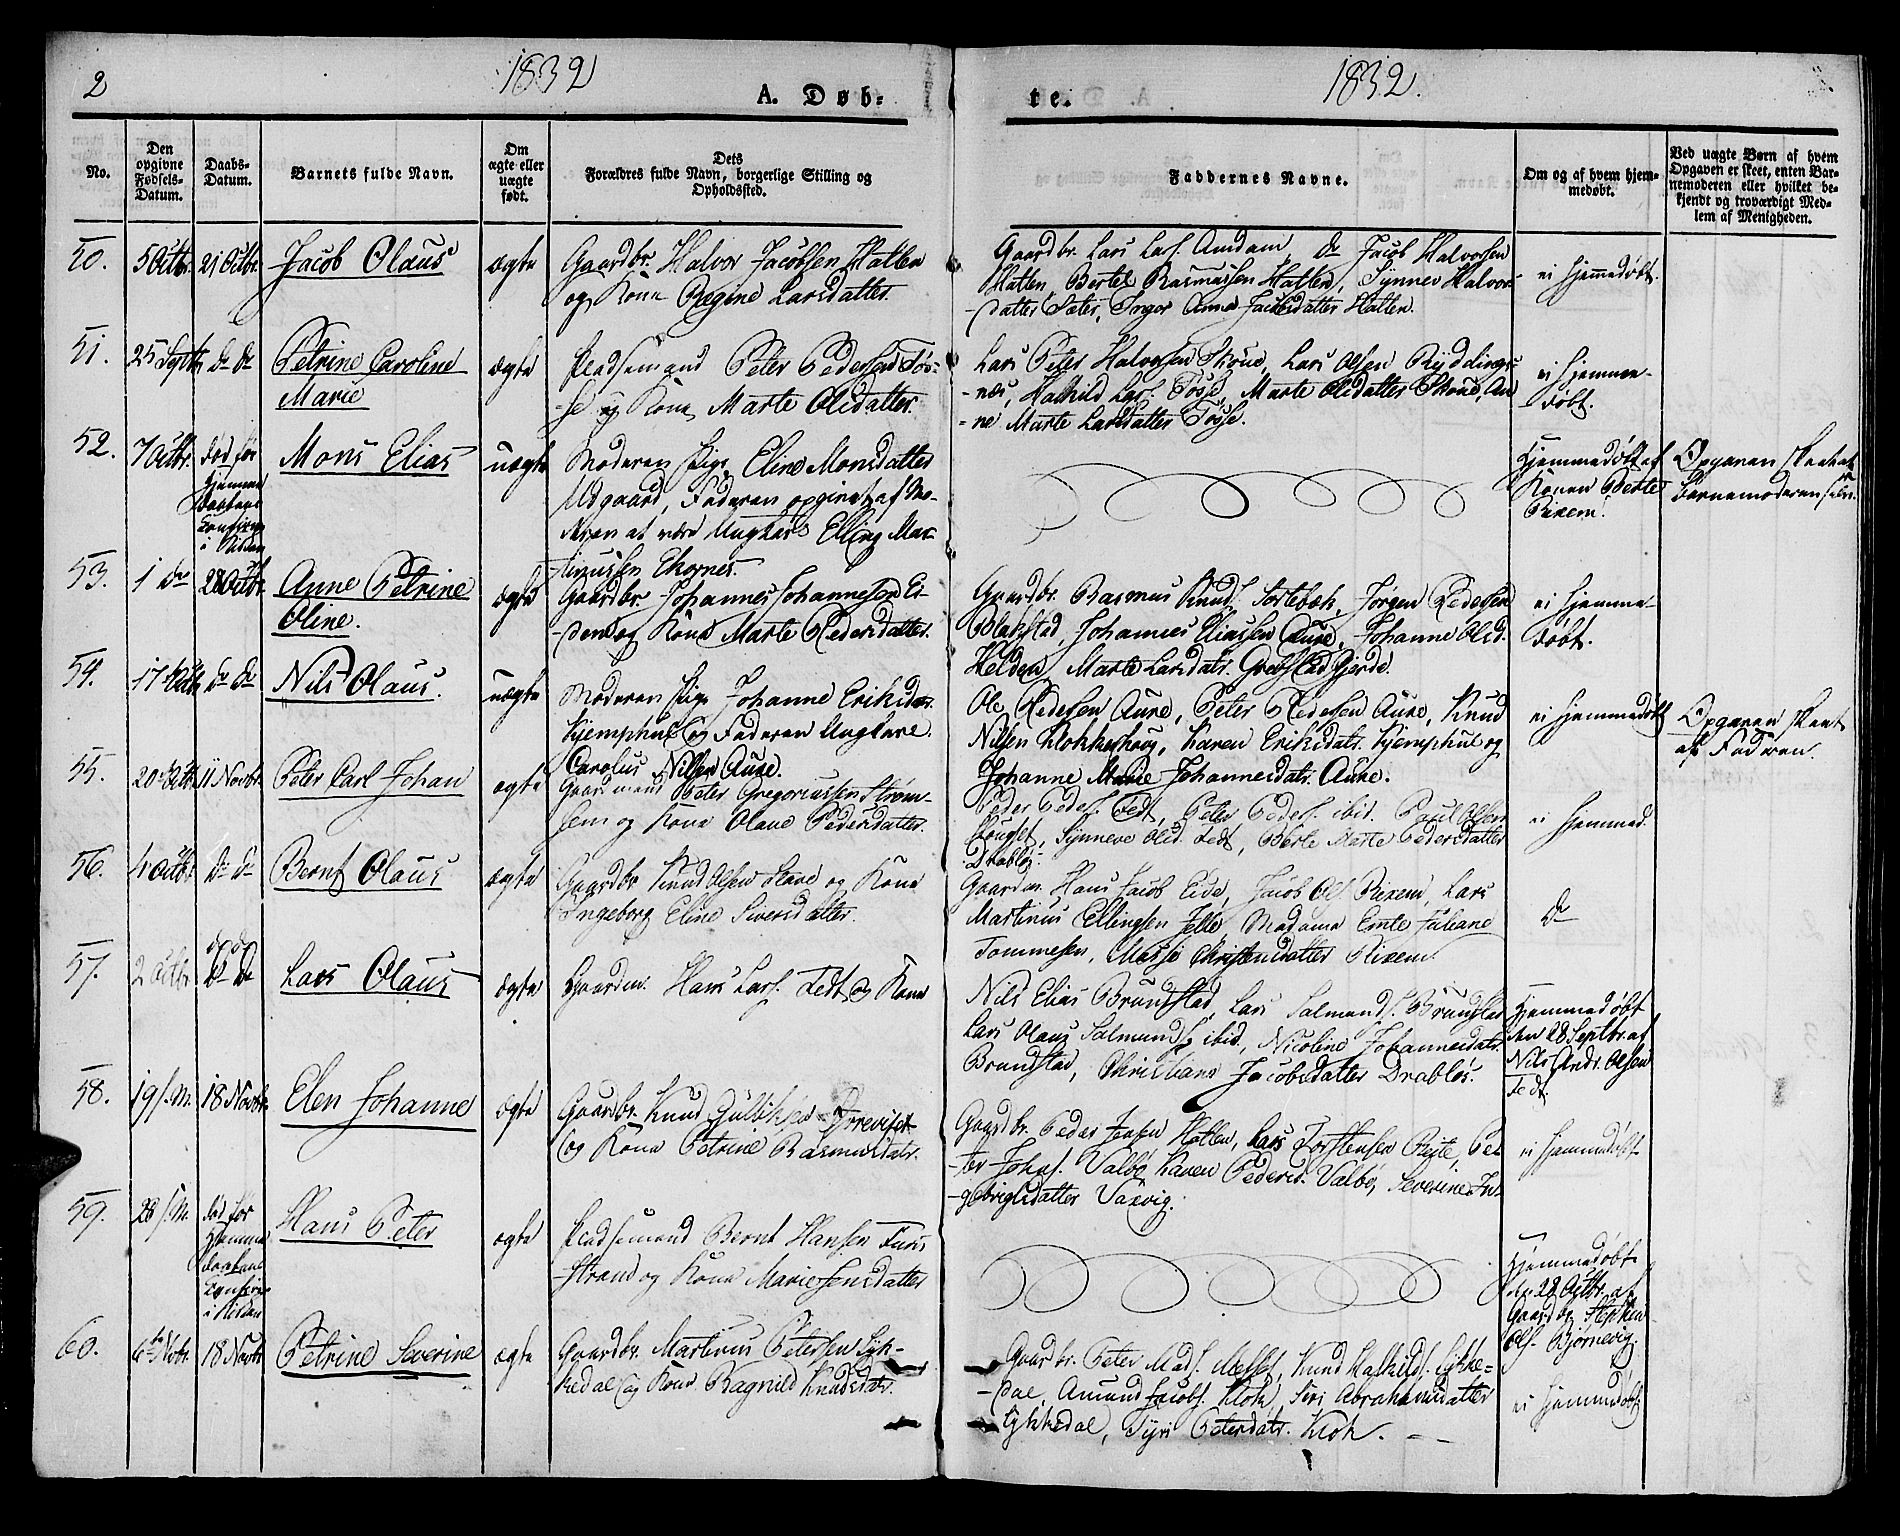 2
1832
A. Døb-
te.
1832.
No.
Den opgivne Fødsels-Datum.
Daabs-Datum.
Barnets fulde Navn.
Om ægte eller uægte født.
Dets
Forældres fulde Navn, borgerlige Stilling og
Opholdssted.
Faddernes Navne.
Om og af hvem hjem-
medøbt.
Ved uægte Børn af hvem
Opgaven er skeet, enten Bar-
nemoderen eller hvilket be-
kjendt og troværdigt Med-
lem af Menigheden.
50.
5 Octbr.
21 Octbr.
Jacob Olaus
ægte
Gaardbr. Halvor Jacobsen Hatlen
og Kone Regine Larsdatter.
Gaardbr. Lars Lars. Amdam, do Jacob Halvorsen
Hatlen, Bertel Rasmussen Hatlen, Synnev Halvor-
datter Sæter, Inger Anna Jacobsdatter Hatlen.
ei hjemmedøbt.
51.
25 Septbr
do do
Petrine Caroline
Marie
ægte
Pladsemand Peter Pedersen Tøs-
se og Kone Marte Olsdatter.
Lars Peter Halvorsen Skoue, Lars Olsen Ryddings-
næs, Halkild Lars. Tøsse, Marte Olsdatter Skoue, An
ne Marte Larsdatter Tøsse.
ei hjemme-
døbt.
52.
7 Octbr.
død før
Hjemme
daabens
Confirm
i Kirken
Mons Elias
uægte
Moderen Pige Eline Monsdatter
Udgaard, Faderen opgivet af Mo-
deren at være Ungkarl Elling Mar-
tinussen Ekornes.
Hjemmedøbt af
Konen Berte
Rixem.
Opgaven skeet af
Barnemoderen selv.
53.
1 do
28 Octbr.
Anne Petrine
Oline.
ægte
Gaardbr. Johannes Johannesen Ei-
dem og Kone Marte Pedersdatter.
Gaardbr. Rasmus Knuds. Sortebæk, Jørgen Pedersen
Blakstad, Johannes Eliassen Aure, Johanne Olsd.
Helden, Marte Larsdatr. Grebstad Gjerde.
ei hjemme-
døbt.
54.
17 Octb
do do
Nils Olaus.
uægte
Moderen Pige Johanne Eriksdr.
Kjemphul og Faderen Ungkarl
Carolus Nilsen Aure.
Ole Pedersen Aure, Peter Pedersen Aure, Knud
Nilsen Klokkerhoug, Karen Eriksdatr. Kjemphul og
Johanne Marie Johannesdatr. Aure.
ei hjemmedøbt
Opgaven skeet
af Faderen.
55.
20 Octb
11 Novbr.
Peter Carl Johan
ægte
Gaardmand Peter Gregoriussen Strøm-
hem og Kone Olave Pedersdatter.
Peder Peders. Fedt, Peter Peders. ibid. Poul Olsen
Synneve Olsd. Fedt, Berte Marte Pedersdatter
Drabløs.
ei hjemmed.
56.
4 Octbr
do do
Bernt Olaus
ægte
Gaardbr. Knud Olsen Lade og Kone
Ingeborg Eline Siversdatter.
Gaardm. Hans Jacob Eide, Jacob Ols. Rixem, Lars
Martinus Ellingsen Jelle, Madame Ernte Juliane
Tommesen, Massi Christensdatter Rixem.
do
57.
2 Octbr
do do
Lars Olaus
ægte
Gaardm. Hans Lars. Fedt og Kone
Nils Elias Brundstad, Lars Salmonds. Brundstad
Lars Olaus Salmunds. ibid., Nicoline Johannesdatr.
Brundstad, Christiane Jacobsdatter Drabløs.
Hjemmedøbt
den 28 Septbr. af
Nils Andr. Olsen
Fedt.
58.
19 f.M.
18 Novbr.
Elen Johanne
ægte
Gaardbr. Knud Gulbiksen Ørrevitet
og Kone Petrine Rasmusdatr.
Gaardbr. Peder Jensen Hatlen, Lars Torstensen Riste, Pet
ter Johns. Valbø, Karen Pedersd. Valbø, Severine In-
gebrigtsdatter Vaxvig.
ei hjemmedøbt
59.
28 f.M.
død før
Hjemme
daabens
Confirm
i Kirken
Hans Peter
ægte
Pladsemand Bernt Hansen Furs
strand og Kone Marie Jensdatter
Hjemmedøbt
den 28 Octbr. af
Gaardbr. Steffen
Ols. Bjørnevig.
60.
6te Novbr.
18 Novbr
Petrine Severine
ægte
Gaardbr. Martinus Petersen Lyk-
kedal og Kone Ragnild Knudsdatr.
Gaardbr. Peter Mads. Melset, Knud Halkilds. Lykke-
dal, Amund Jacobs. Klok, Siri Abrahamsdatter
Lykkedal, Syri Petersdatr. Klok.
ei hjemmedøbt